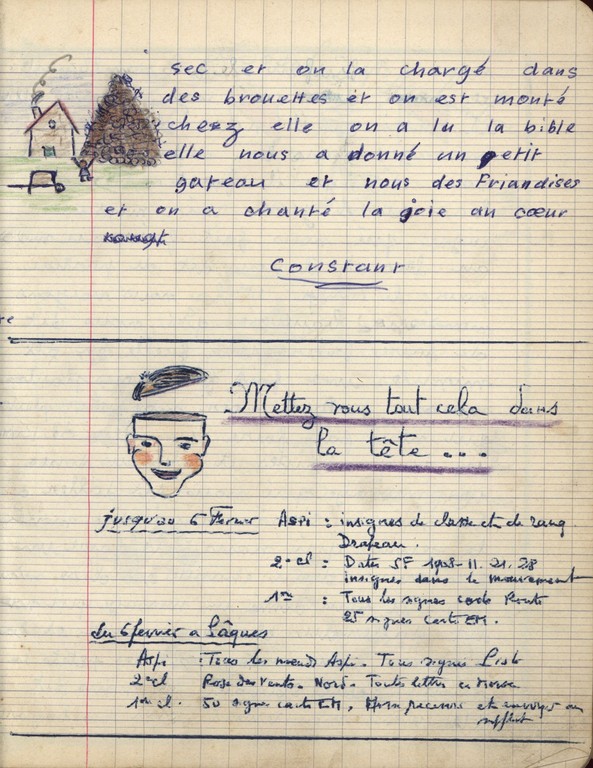 sec et on la chargé dans
des brouettes et on est monté
chezz elle on a lu la bible
elle nous a donné un petit
gateau et nous des Friandises
et on a chanté la joie au cœur
Constant
Mettez vous tout cela dans
la tête ...
jusqu'au 6 Fevrier Aspi : insignes de classe et de rang
Drapeau.
2e cl : Dates SF 1908-11.21.28
insignes dans le mouvement
1ere : Tous les signes code Route
25 signes carte EM.
du 6 fevrier a Pâques
Aspi : Tous les nœuds Aspi. Tous signes Piste
2e cl Rose des Vents. Nord. Toutes lettres en Morse
1ere cl. 50 signes carte EM, Morse recevoir et envoyer au